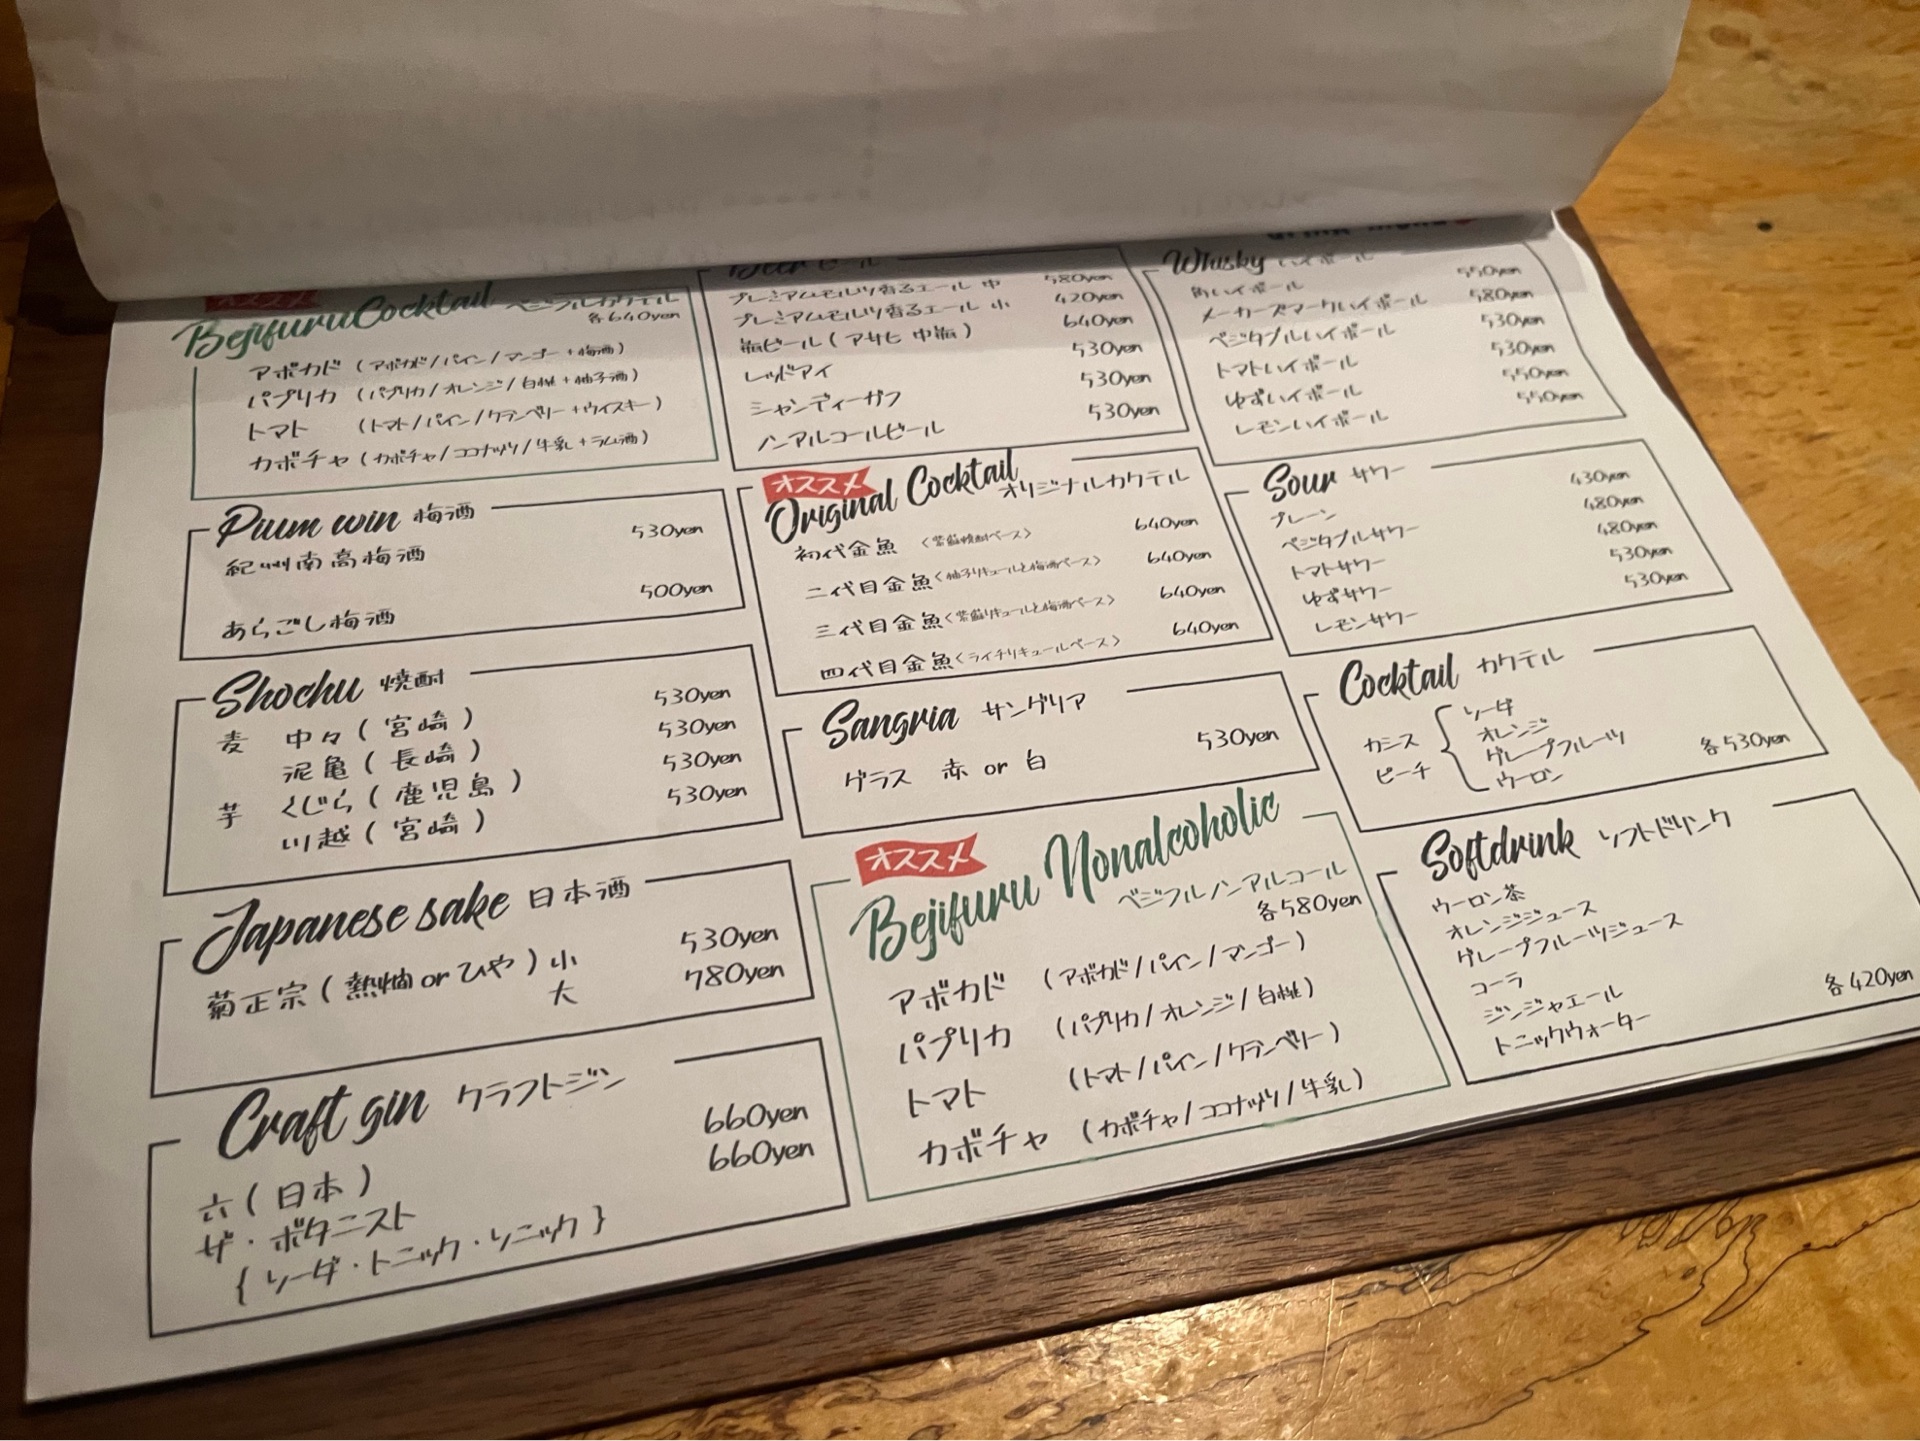 オススメ
Bejifuru Cocktail ベジフルカクテル
各640yen
アボカド (アボカド/パイン/マンゴー+梅酒)
パプリカ (パプリカ/オレンジ/白桃+柚子酒)
トマト (トマト/パイン/クランベリー+ウイスキー)
カボチャ (カボチャ/ココナッツ/牛乳+ラム酒)
Plum win 梅酒
紀州南高梅酒 530yen
あらごし梅酒 500yen
Shochu 焼酎
麦 中々(宮崎) 530yen
泥亀(長崎) 530yen
芋 くじら(鹿児島) 530yen
川越(宮崎) 530yen
Japanese sake 日本酒
菊正宗(熱燗orひや)小 530yen
大 780yen
Craft gin クラフトジン
六(日本) 660yen
ザ・ボタニスト 660yen
{ソーダ・トニック・ソニック}
Beer ビール
プレミアムモルツ香るエール 中 580yen
プレミアムモルツ香るエール 小 420yen
瓶ビール(アサヒ 中瓶) 640yen
レッドアイ 530yen
シャンディーガフ 530yen
ノンアルコールビール 530yen
オススメ
Original Cocktail オリジナルカクテル
初代金魚 <紫蘇焼酎ベース> 640yen
二代目金魚<柚子リキュールと梅酒ベース> 640yen
三代目金魚<紫蘇リキュールと梅酒ベース> 640yen
四代目金魚<ライチリキュールベース> 640yen
Sangria サングリア
グラス 赤 or 白 530yen
オススメ
Bejifuru Nonalcoholic
ベジフルノンアルコール
各580yen
アボカド (アボカド/パイン/マンゴー)
パプリカ (パプリカ/オレンジ/白桃)
トマト (トマト/パイン/クランベリー)
カボチャ (カボチャ/ココナッツ/牛乳)
Whisky ハイボール
角ハイボール 550yen
メーカーズマークハイボール 580yen
ベジタブルハイボール 530yen
トマトハイボール 530yen
ゆずハイボール 550yen
レモンハイボール 550yen
Sour サワー
プレーン 430yen
ベジタブルサワー 480yen
トマトサワー 480yen
ゆずサワー 530yen
レモンサワー 530yen
Cocktail カクテル
カシス
ピーチ
ソーダ
オレンジ
グレープフルーツ
ウーロン
各530yen
Softdrink ソフトドリンク
ウーロン茶
オレンジジュース
グレープフルーツジュース
コーラ
ジンジャエール
トニックウォーター
各420yen